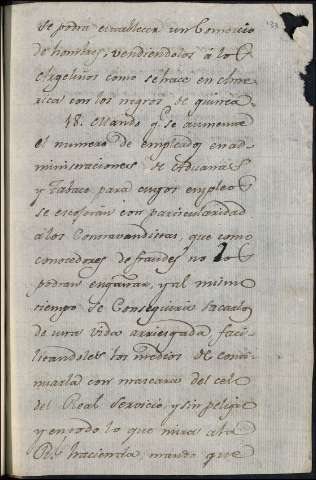 se podrá establecer un Comercio
de hombres, vendiendolos á los
Argelinos como se hace en Ame-
rica con los negros de guinea.
18. Mando q.e se aumente
el numero de empleados en ad-
ministraciones de Aduanas
y Tabaco para cuyos empleos
se escojerán con particularidad
á los Contravandistas, que como
conocedores de fraudes no los
podran engañar, y al mismo
tiempo se conseguirá sacarlos
de una vida arriesgada, faci-
litandoles los medios de conti-
nuarla con mascara del celo
del Real Servicio, y sin peligro
y en todo lo que mira a la
Rl. hacienda, mando que